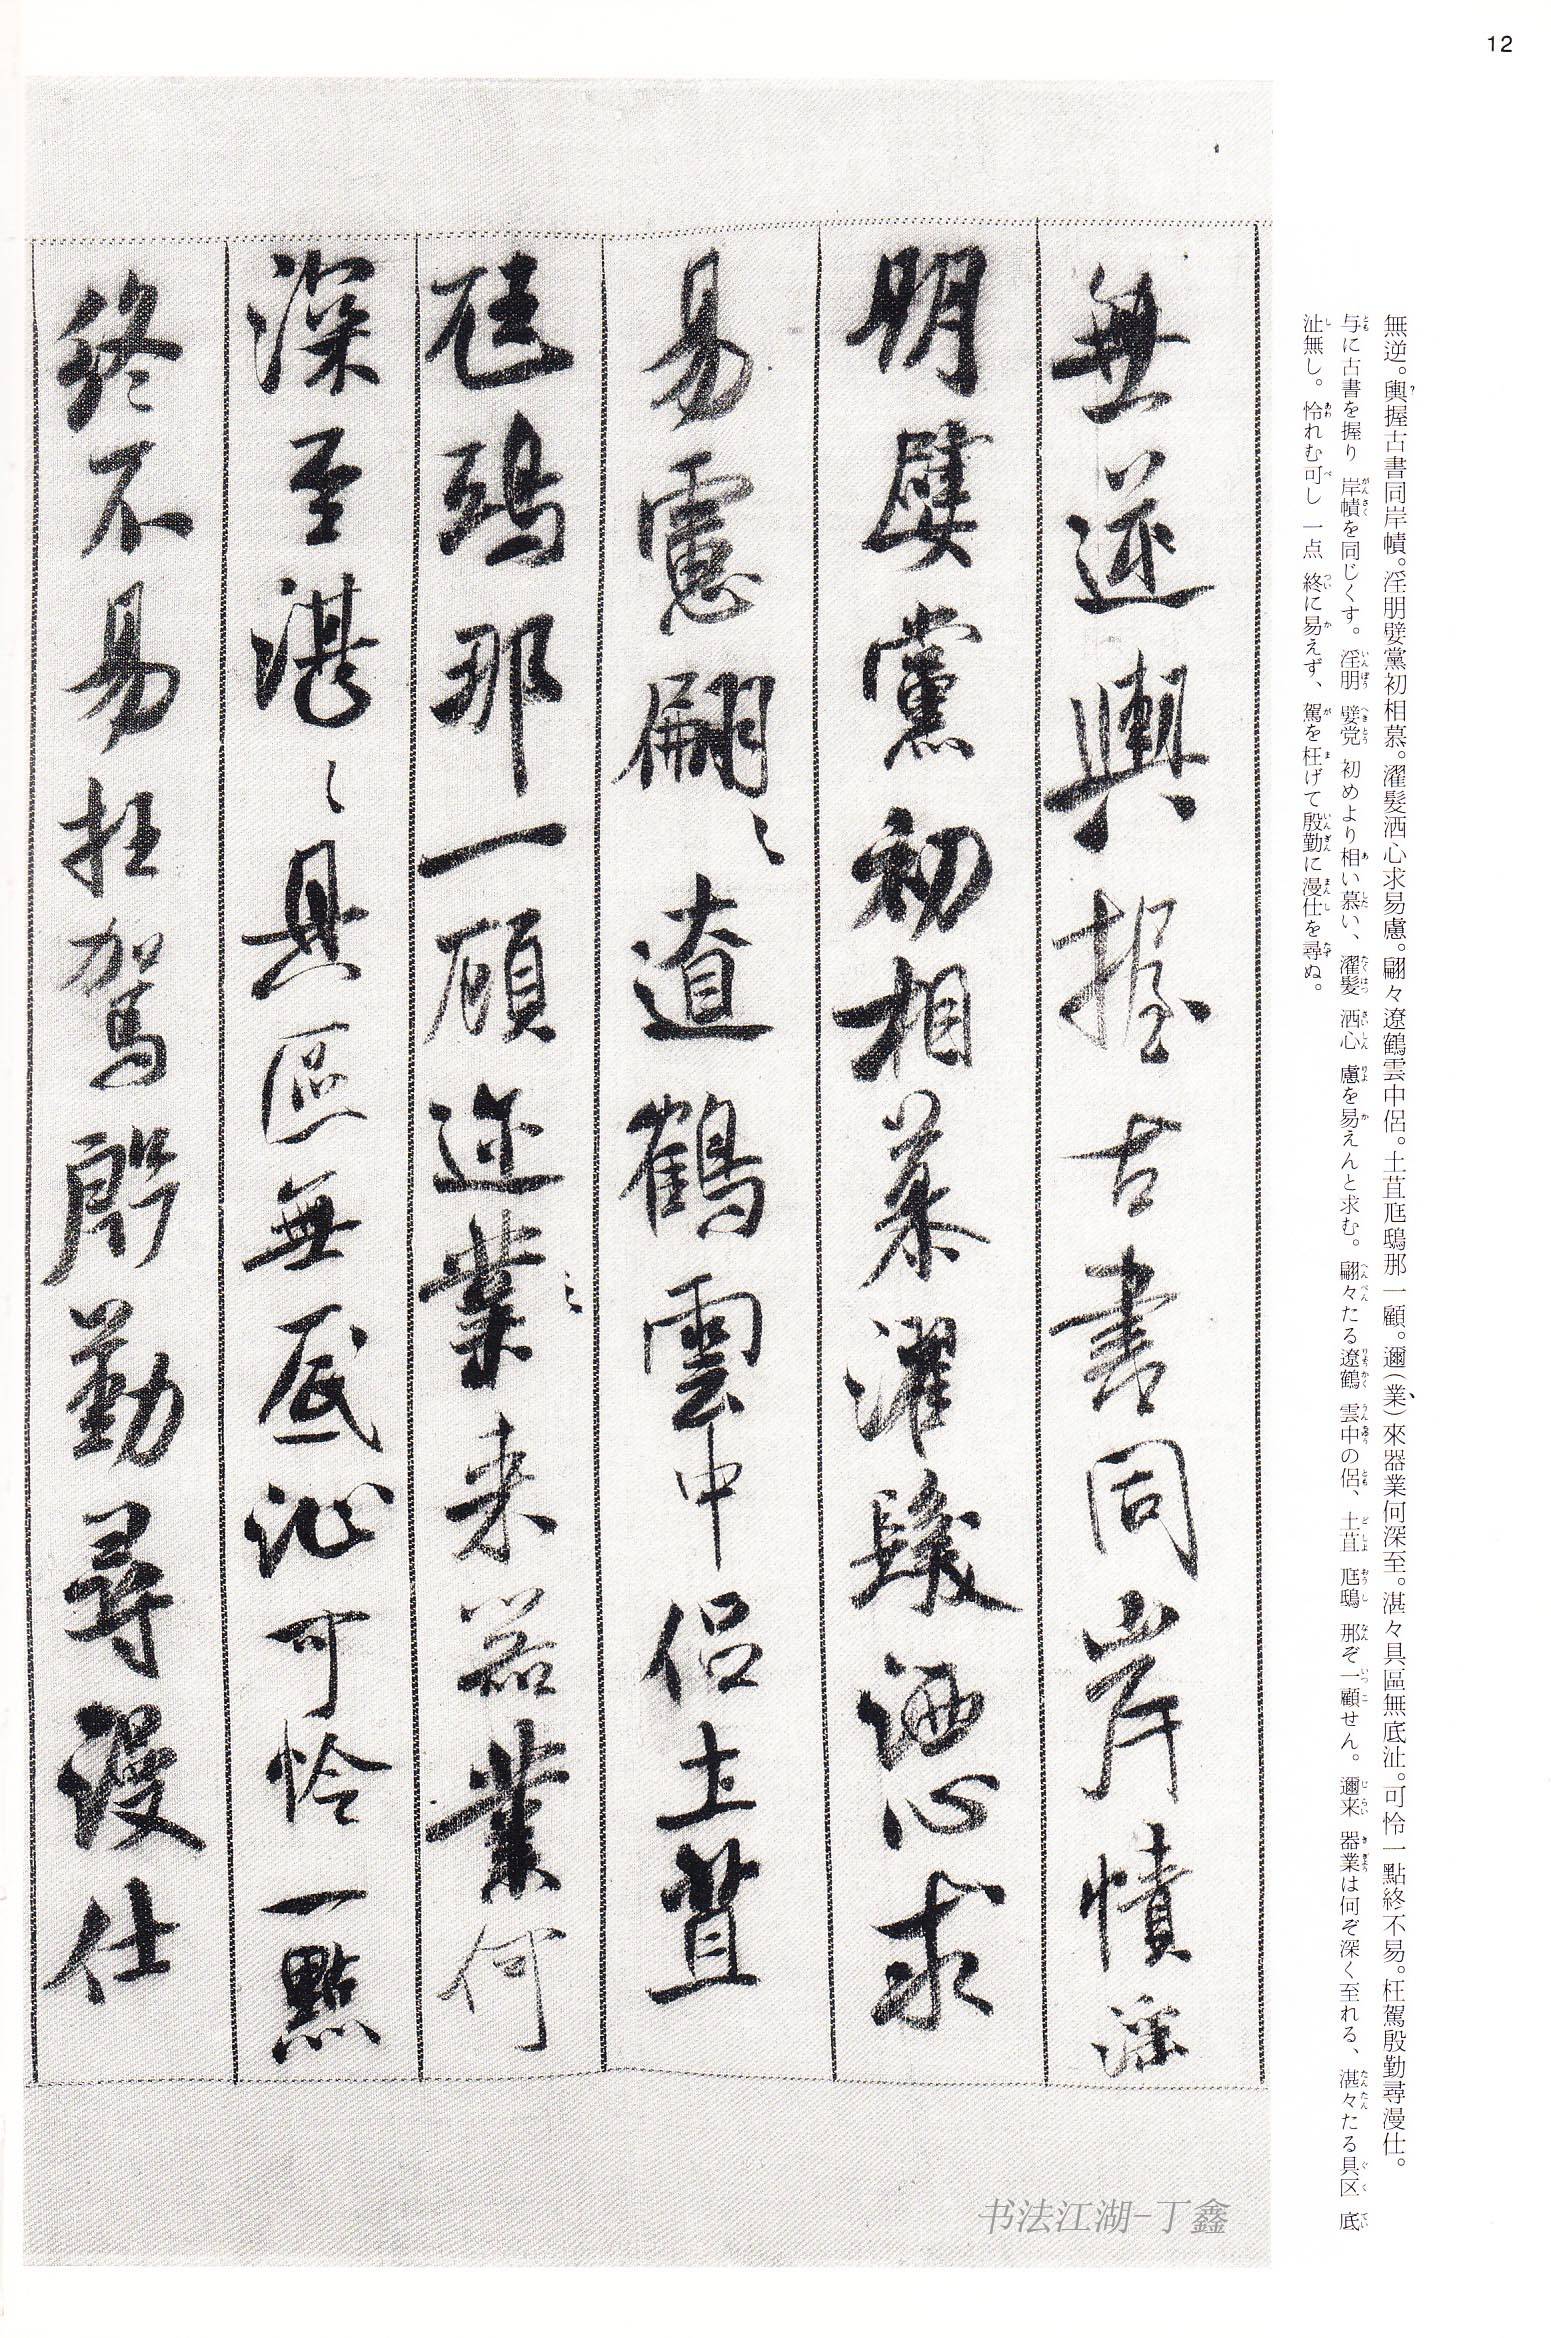 12
無逆。輿握古書同岸幘。淫朋嬖黨初相慕。濯髮洒心求易慮。翩々遼鶴雲中侶。土苴尫鴟那一顧。邇(業)來器業何深至。湛々具區無底沚。可怜一點終不易。枉駕殷勤尋漫仕。
与に古書を握り 岸幘を同じくす。淫朋 嬖党 初めより相い慕い、濯髪 洒心 慮を易えんと求む。翩々たる遼鶴 雲中の侶、土苴 尫鴟 那ぞ一顧せん。邇来 器業は何ぞ深く至れる、湛々たる具区 底
沚無し。怜れむ可し 一点 終に易えず、駕を枉げて殷勤に漫仕を尋ぬ。
無逆輿握古書同岸幘淫
朋嬖黨初相慕濯髮洒心求
易慮翩〻遼鶴雲中侶土苴
尫鴟那一顧邇業〻来器業何
深至湛〻具區無底沚可怜一點
終不易枉駕殷勤尋漫仕
书法江湖-丁鑫